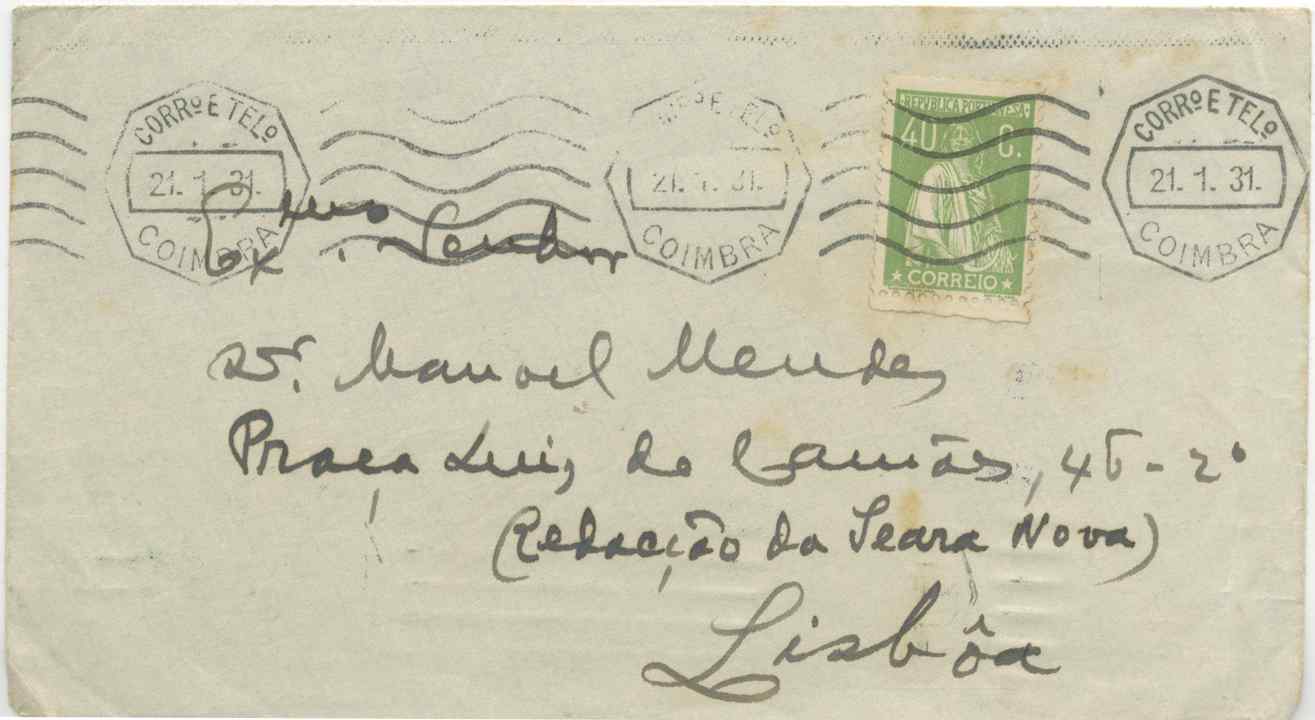 CORRº E TELº CORRº E TELº CORRº E TELº
21. 1. 31. 21. 1. 31. 21. 1. 31.
COIMBRA COIMBRA COIMBRA
REPVBLICA PORTVGVESA
40 C.
CORREIO
Exmo. Senhor
Dr. Manuel Mendes
Praça Luis de Camões, 46-2º
(Redacção da Seara Nova)
Lisbôa